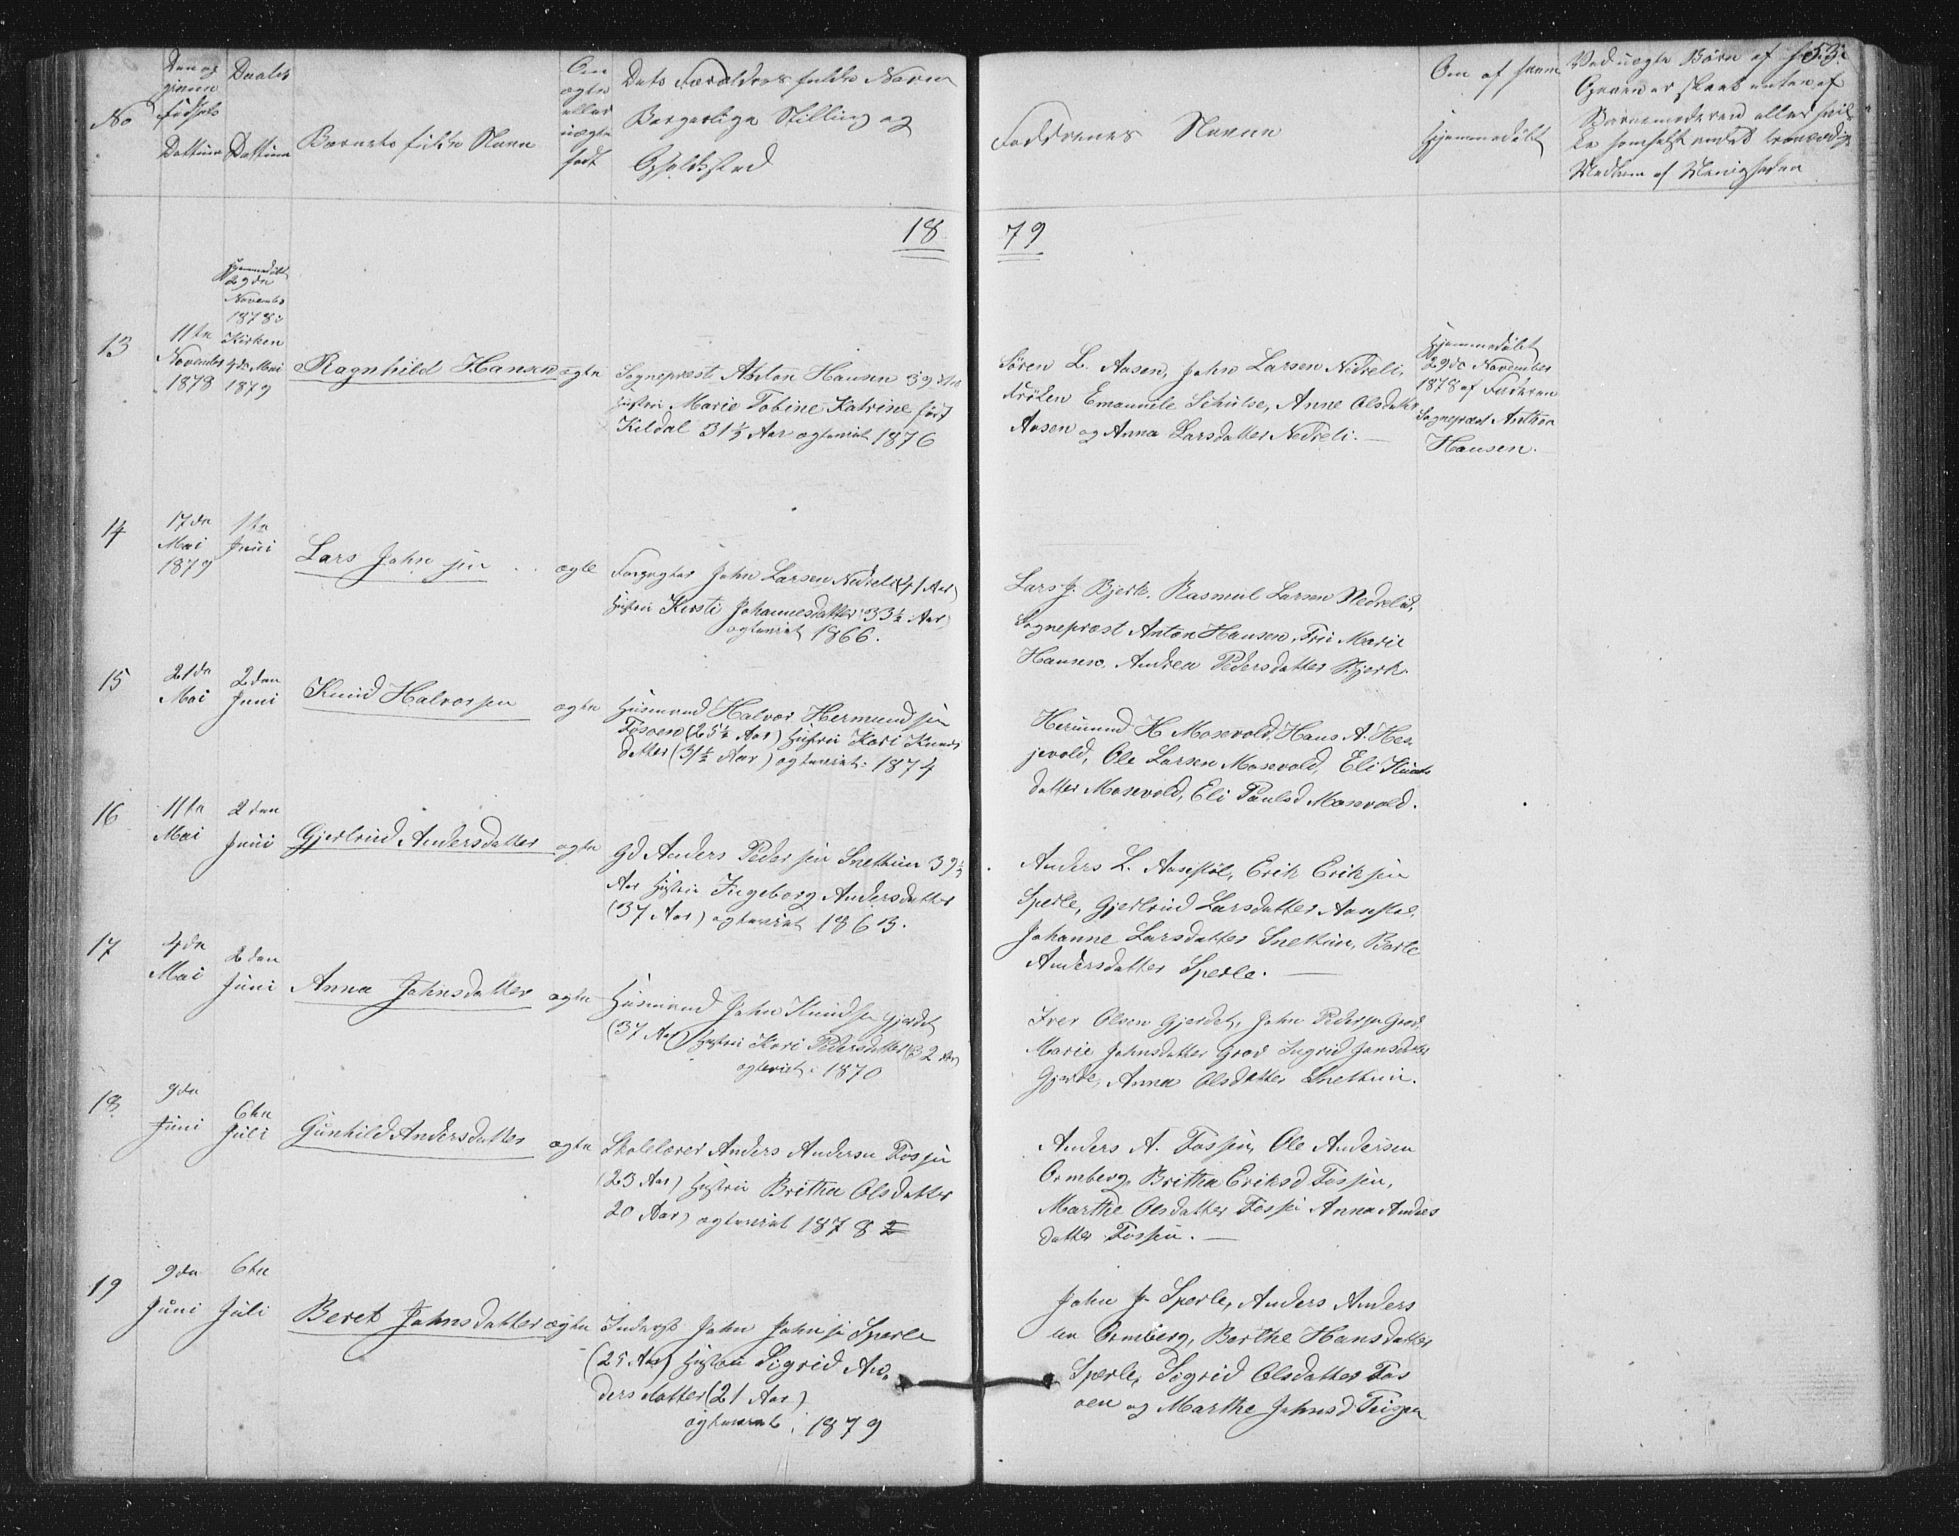 53.
No
Den og
Fødsels
Dattum
Daabs
Dattum
Barnets fulde Navn
Om
ægte
eller
uægte
født
Dets Forældres fulde Navn
Borgerlige Stilling og
Opholdssted
Faddernes Navne
Om af
Hjemmedøbt
Ved uægte Børn af
Medlem af Menigheden
1879
13
11te
November
1878
Hjemmedøbt
29de
November
1878
Kirken
4de Mai
1879
Ragnhild Hansen
ægte
Sogneprest Anton Hansen 39 Aar
Hustru Marie Tobine Katrine født
Kildal 31½ Aar ægteviet 1876
Søren L. Aasen, John Larsen Nedreli,
Frøken Emanuele Schulse, Anne Olsdatter
Aasen og Anna Larsdatter Nedreli.
Hjemmedøbt
29de November
1878 af Faderen
Sogneprest Anton
Hansen.
14
17de
Mai
1879
1te
Juni
Lars Johnsen
ægte
Forpagter John Larsen Nedreli (41 Aar)
Hustru Kirsti Johannesdatter 33½ Aar)
ægteviet 1866.
Lars J. Bjerk, Rasmus Larsen Nedrelid,
Sogneprest Anton Hansen, Fru Marie
Hansen, Andrea Pedersdatter Bjerk.
15
21de
Mai
2den
Juni
Knud Halvorsen
ægte
Husmand Halvor Hermundsen
Fosoen (25½ Aar) Hustru Kari Knuds
datter (31½ Aar) ægteviet 1874
Hermund H Mosevold, Hans A. Hes
jevold, Ole Larsen Mosevold, Eli Knuds
datter Mosevold, Eli Paulsd Mosevold.
16
11te
Mai
2den
Juni
Gjertrud Andersdatter
ægte
Gd Anders Pedersen Snethun 39½
Aar Hustru Ingeborg Andersdatter
(37 Aar) ægteviet 1863.
Anders L. Aasestøl, Erik Eriksen
Sperle, Gjertrud Larsdatter Aasestøl
Johanne Larsdatter Snethun, Barle
Andersdatter Sperle.
17
4de
Mai
2den
Juni
Anna Johnsdatter
ægte
Husmand John Knudsen Gjerdet
(37 Aar) Hustru Kari Pedersdatter (32 Aar)
ægteviet 1870
Iver Olsen Gjerdet, John Pedersen Grov,
Marie Johnsdatter Grov Ingrid Jansdatter
Gjerde, Anna Olsdatter Snethun.
18
9de
Juni
6te
Juli
Gunhild Andersdatter
ægte
Skolelærer Anders Andersen Fossen
(23 Aar) Hustru Britha Olsdatter
20 Aar) ægteviet 1878
Anders A. Fossen, Ole Andersen
Ormberg, Britha Eriksd Fossen,
Marthe Olsdatter Fossen Anna Anders
datter Fossen.
19
9de
Juni
6te
Juli
Beret Johnsdatter
ægte
Inderst John Johnsen Sperle
(25 Aar) Hustru Sigrid An
dersdatter (21 Aar)
ægteviet 1879
John J. Sperle, Anders Anders
en Ormberg, Barthe Hansdatter
Sperle, Sigrid Olsdatter Fos
oen og Marthe Johnsd